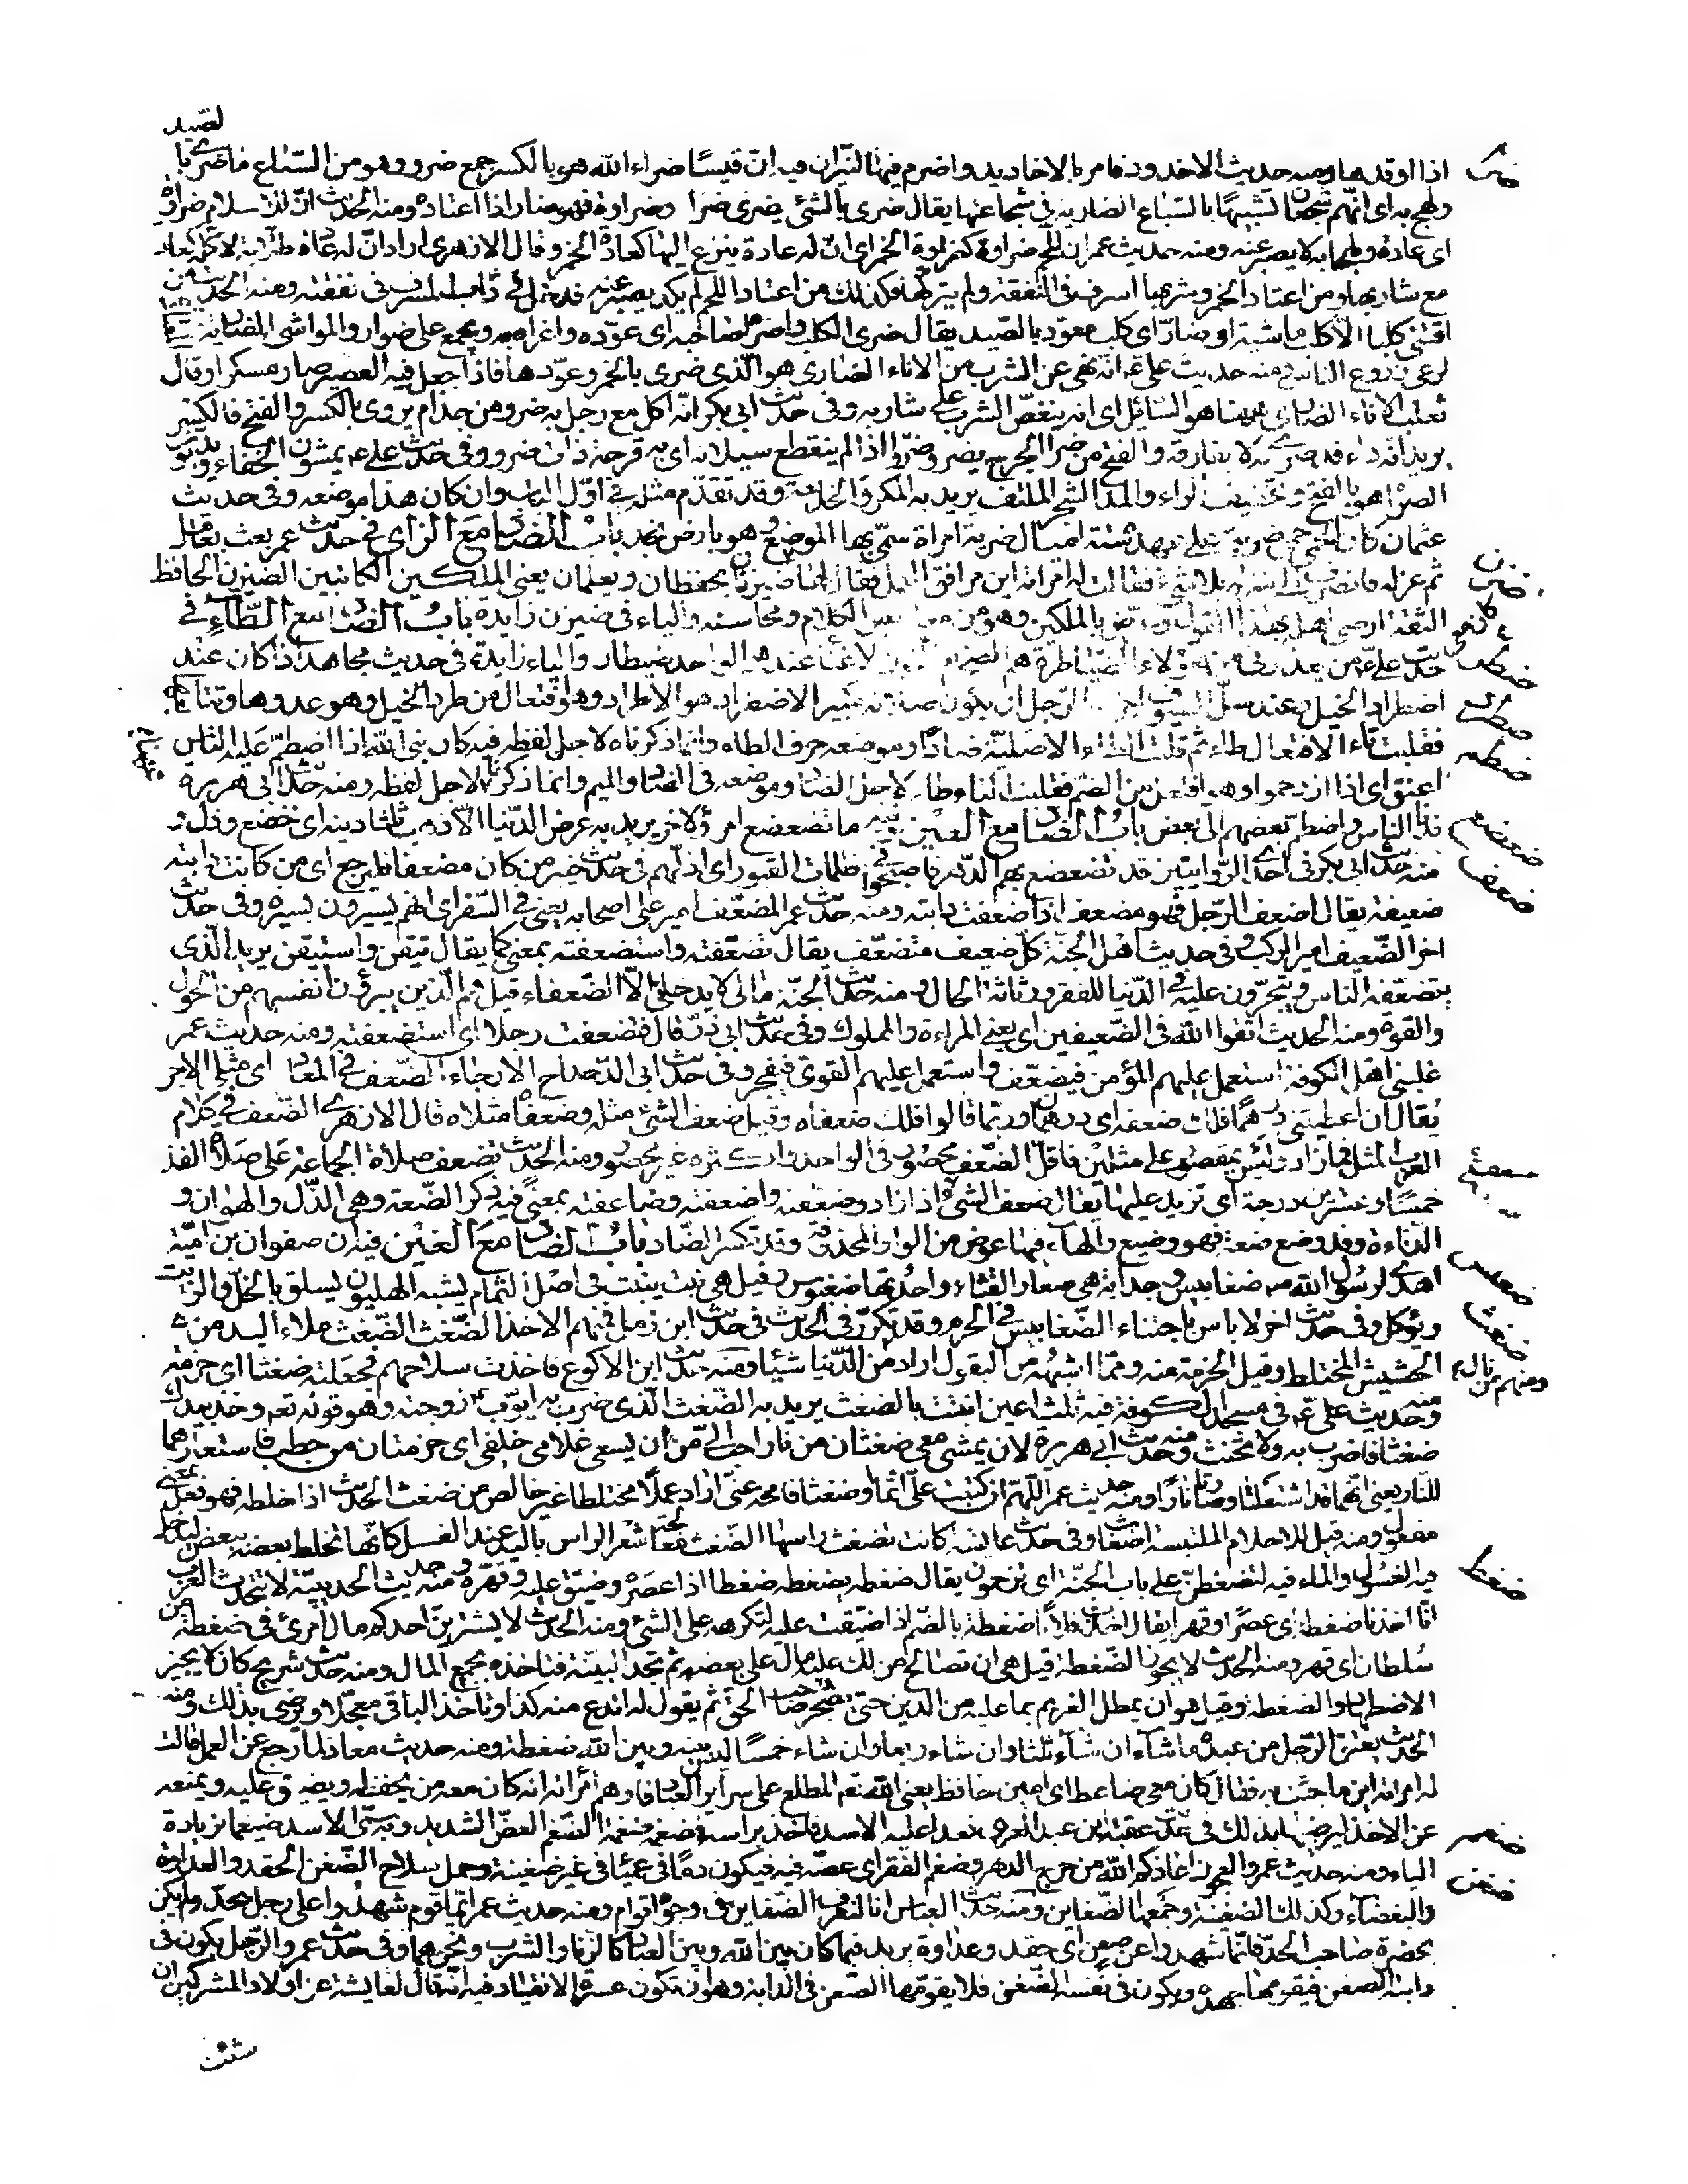 لصّيد
اذا اوقدها ومنه حديث الاخدود فامر بالاخاديد واضرم فيها النّيران فيه انّ قيسًا ضراء الله هو بالكسر جمع ضرو وهو من السّباع ما ضرى با
ولهج به اى انّهم شجعان تشبيهًا بالسّباع الضارية فى شجاعتها يقال ضرى بالشئ يضرى ضرا وضراوة فهو ضار اذا اعتاده ومنه الحديث انّ للاسلام ضراوة
اى عادة ولهجا به لا يصبر عنه ومنه حديث عمر ان للحم ضراوة كضراوة الخمر اى ان له عادة ينزع اليها كعادة الخمر وقال الازهرى اراد انّ له عادة طلابة لاكله كعادة
مع شاربها ومن اعتاد الخمر وشربها اسرف فى النّفقة ولم يتركها وكذلك من اعتاد اللحم لم يكد يصبر عنه فدخل فى دأب المسرف فى نفقته ومنه الحديث من
اقتنى كلبا الّا كلب ماشية او ضار اى كلب معوّد بالصّيد يقال ضرى الكلب واضراه صاحبه اى عوّده واغراه به ويجمع على ضوار والمواشى الضارية
لرعى زروع الناس ومنه حديث على ع انّه نهى عن الشرب من الاناء الضارى هو الّذى ضرى بالخمر وعوّد بها فاذا جعل فيه العصير صار مسكرا وقال
ثعلب الاناء الضارى ههنا هو السّائل اى انه ينغّص الشرب على شاربه وفى حديث ابى بكر انّه اكل مع رجل به ضرو من جذام يروى بالكسر والفتح فالكسر
يريد انّه داء قد ضرى به لا يفارقه والفتح من ضرا الجرح يضرو ضروا اذا لم ينقطع سيلانه اى به قرحة ذات ضرو وفى حديث على ع يمشون الخفاء ويدبّون
الضراء هو بالفتح وتخفيف الراء والمد الشجر الملتف يريد به المكر والخديعة وقد تقدّم مثله فى اوّل الباب وان كان هذا موضعه وفى حديث
عثمان كان الحمى حمى ضرية على عهده ستة اميال ضرية امراة سمّى بها الموضع وهو بارض نجد باب الضاد مع الزاى فى حديث عمر بعث بعامل
ثم عزله فانصرف الى منزله بلا شئ فقالت له امراته اين مرافق العمل فقال كان معى ضيزنان يحفظان ويعلمان يعنى الملكين الكاتبين الضّيزن الحافظ
الثقة ارضى اهله بهذا القول وعرّض بالملكين وهو من معاريض الكلام ومحاسنه والياء فى ضيزن زايدة باب الضاد مع الطّاء فى
حديث على ع من يعذرنى من هؤلاء الضّياطرة هم الضخام الذين لا غناء عندهم الواحد ضيطار والياء زايدة فى حديث مجاهد اذا كان عند
اضطراد الخيل وعند سلّ السيوف اجزا الرجل ان يكون صلاته تكبيرا الاضطراد هو الاطراد وهو افتعال من طراد الخيل وهو عدوها وتتابعها
فقلبت تاء الافتعال طاء ثم قلبت الطاء الاصليّة ضادًا وموضعه حرف الطاء وانما ذكرناه لاجل لفظه فيه كان نبى الله اذا اضطمّ عليه الناس
اعنق اى اذا ازدحموا وهو افتعل من الضم فقلبت التاء طاء لاجل الضاد وموضعه فى الضاد والميم وانما ذكرناه لاجل لفظه ومنه حديث ابى هريره
فدنا الناس واضطمّ بعضهم الى بعض باب الضاد مع العين فيه ما تضعضع امرؤ لاخر يريد به عرض الدّنيا الّا ذهب ثلثا دينه اى خضع وذلّ و
منه حديث ابى بكر فى احدى الرّوايتين قد تضعضع بهم الدّهر فاصبحوا فى ظلمات القبور اى اذلّهم فى حديث خيبر من كان مضعفا فليرجع اى من كانت دابته
ضعيفة يقال اضعف الرّجل فهو مضعف اذا ضعفت دابته ومنه حديث عمر المضعّف امير على اصحابه يعنى فى السّفر اى انهم يسيرون بسيره وفى حديث
اخر الضّعيف امير الركب وفى حديث اهل الجنّة كلّ ضعيف متضعّف يقال تضعّفته واستضعفته بمعنى كما يقال تيقن واستيقن يريد الّذى
يتضعّفه الناس ويتجبّرون عليه فى الدّنيا للفقر ورثاثة الحال ومنه حديث الجنّة مالى لا يدخلنى الّا الضّعفاء قيل هم الّذين يبرؤن انفسهم من الحول
والقوة ومنه الحديث اتّقوا الله فى الضّعيفين اى يعنى المراءة والمملوك وفى حديث ابى ذرّ قال فتضعفت رجلا اى استضعفته ومنه حديث عمر
غلبنى اهل الكوفة استعمل عليهم المؤمن فيضعّف واستعمل عليهم القوى فيفجر وفى حديث ابى الدّحداح الا رجاء الضّعف فى المعاد اى مثلى الاجر
يقال ان اعطيتنى درهمًا فلك ضعفه اى درهمان وربّما قالوا فلك ضعفاه وقيل ضعف الشئ مثله وضعفاه مثلاه قال الازهرى الضّعف فى كلام
العرب المثل فما زاد وليس بمقصور على مثلين فاقلّ الضّعف محصور فى الواحد واكثره غير محصور ومنه الحديث تضعف صلاة الجماعة على صلاة الفذ
خمسًا وعشرين درجة اى تزيد عليها يقال ضعف الشئ اذا زاد وضعفته واضعفته وضاعفته بمعنى فيه ذكر الضّعة وهى الذّل والهوان و
الدّناءة وقد وضع ضعة فهو وضيع والهاء فيها عوض من الواو المحذوفة وقد تكسر الضّاد باب الضاد مع الغين فيه ان صفوان بن اميّة
اهدى لرسول الله ص ضغابيس وجداية هى صغار القثاء واحدتها ضغبوس وقيل هى نبت ينبت فى اصل الثمام يشبه الهليون يسلق بالخل والزيت
ويؤكل وفى حديث اخر لا باس باجتناء الضّغابيس فى الحرم وقد تكرّر فى الحديث فى حديث ابن زمل فمنهم الاخذ الضّغث الضّغث ملاء اليد من
الحشيش المختلط وقيل الحزمة منه وممّا اشبهه من البقول اراد من الدّنيا شيئا ومنه حديث ابن الاكوع فاخذت سلاحهم فجعلته ضغثا اى حزمة
ومنه حديث على ع فى مسجد الكوفة فيه ثلث اعين انبتت بالضغث يريد به الضّغث الّذى ضرب به ايوّب ع زوجته وهو قوله تعم وخذ بيدك
ضغثا فاضرب به ولا تحنث ومنه حديث ابى هريرة لان يمشى معى ضغثان من نار احب الىّ من ان يسعى غلامى خلفى اى حزمتان من حطب فاستعارهما
للنّار يعنى انهما قد اشتعلتا وصارتا نارا ومنه حديث عمر اللّهمّ ان كتبت علىّ اثما او ضغثا فامحه عنى اراد عملًا مختلطا غير خالص من ضغث الحديث اذا خلطه فهو فعل بمعنى
مفعول ومنه قيل للاحلام الملتبسة اضغاث وفى حديث عايشه كانت تضغث راسها الضّغث معالجة شعر الراس باليد عند الغسل كانّها تخلط بعضه ببعض ليدخل
فيه الغسول والماء فيه لتضغطنّ على باب الجنّة اى تزحمون يقال ضغطه يضغطه ضغطا اذا عصره وضيّق عليه وقهره ومنه حديث الحديبيّة لا تتحدث العرب
انّا اخذنا ضغطة اى عصرًا وقهرا يقال اخذت فلانًا ضغطة بالضّم اذا ضيّقت عليه لتكرهه على الشئ ومنه الحديث لا يشترينّ احدكم مال امرئ فى ضغطة من
سلطان اى قهر ومنه الحديث لا يجوز الضّغطة قيل هى ان تصالح من لك عليه مال على بعضه ثم تجد البيّنة فتاخذه بجميع المال ومنه حديث شريح كان لا يجيز
الاضطهاد والضغطة وقيل هو ان يمطل الغريم بما عليه من الدين حتى يضجر صاحب الحق ثم يقول له اتدع منه كذا وتاخذ الباقى معجلا ويرضى بذلك ومنه
الحديث يعتق الرّجل من عبده ما شاء ان شاء ثلثا وان شاء ربعا وان شاء خمسًا ليس بينه وبين الله ضغطة ومنه حديث معاذ لما رجع عن العمل قالت
له امراته اين ما جئت به فقال كان معى ضاغط اى امين حافظ يعنى الله تعم المطلع على سرائر العباد فاوهم امراته انه كان معه من يحفظه ويضيق عليه ويمنعه
عن الاخذ ليرضيها بذلك فى حديث عتبة بن عبد العزى فعدا عليه الاسد فاخذ براسه فضغمه ضغمة الضّغم العضّ الشديد وبه سمّى الاسد ضيغما بزيادة
الياء ومنه حديث عمر والعجوز اعاذكم الله من جرح الدهر وضغم الفقر اى عضّه فيه فيكون دمًا فى عميّا فى غير ضغينة وحمل سلاح الضّغن الحقد والعداوة
والبغضاء وكذلك الضغينة وجمعها الضّغاين ومنه حديث العباس انا لنعرف الضّغاين فى وجوه اقوام ومنه حديث عمر ايّما قوم شهدوا على رجل بحدّ ولم يكن
بحضرة صاحب الحدّ فانّما شهدوا عن ضغن اى حقد وعداوة يريد فيما كان بين الله وبين العباد كالزنا والشرب ونحوهما وفى حديث عمر والرّجل يكون فى
دابته الضغن فيقومها جهده ويكون فى نفسه الضّغن فلا يقومها الضّغن فى الدابة وهو ان تكون عسرة الانقياد فيه انّه قال لعايشة عن اولاد المشركين ان
شئت
ضزن
ضطر
ضعضع
ضعف
ضغبس
ضغث
ضغط
ضغم
ضغن